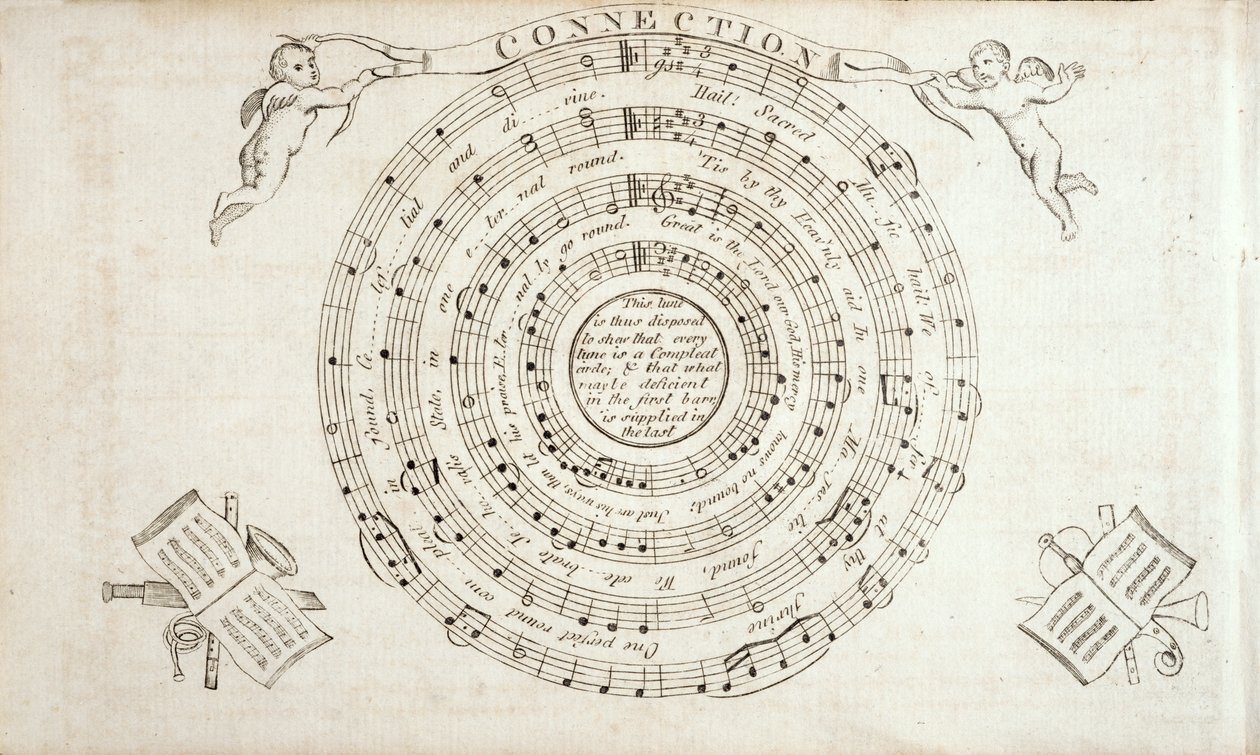 CONNECTION
Hail! Sacred Mu..ſic hail: We of....fer at thy ſhrine One perfect round com..pleat in ſound, Ce........leſ........tial and di........vine.
'Tis by thy Heav'nly aid In one Ma...jeſ...tic ſound, We cele...brate Je...ho..vah's State, in one e...ter...nal round.
Great is the Lord our God, His mercy knows no bound; Just are his ways, then let his praise E..ter....nal ly go round.
This tune
is thus disposed
to shew that every
tune is a Compleat
circle; & that what
may be deficient
in the first barr,
is supplied in
the last